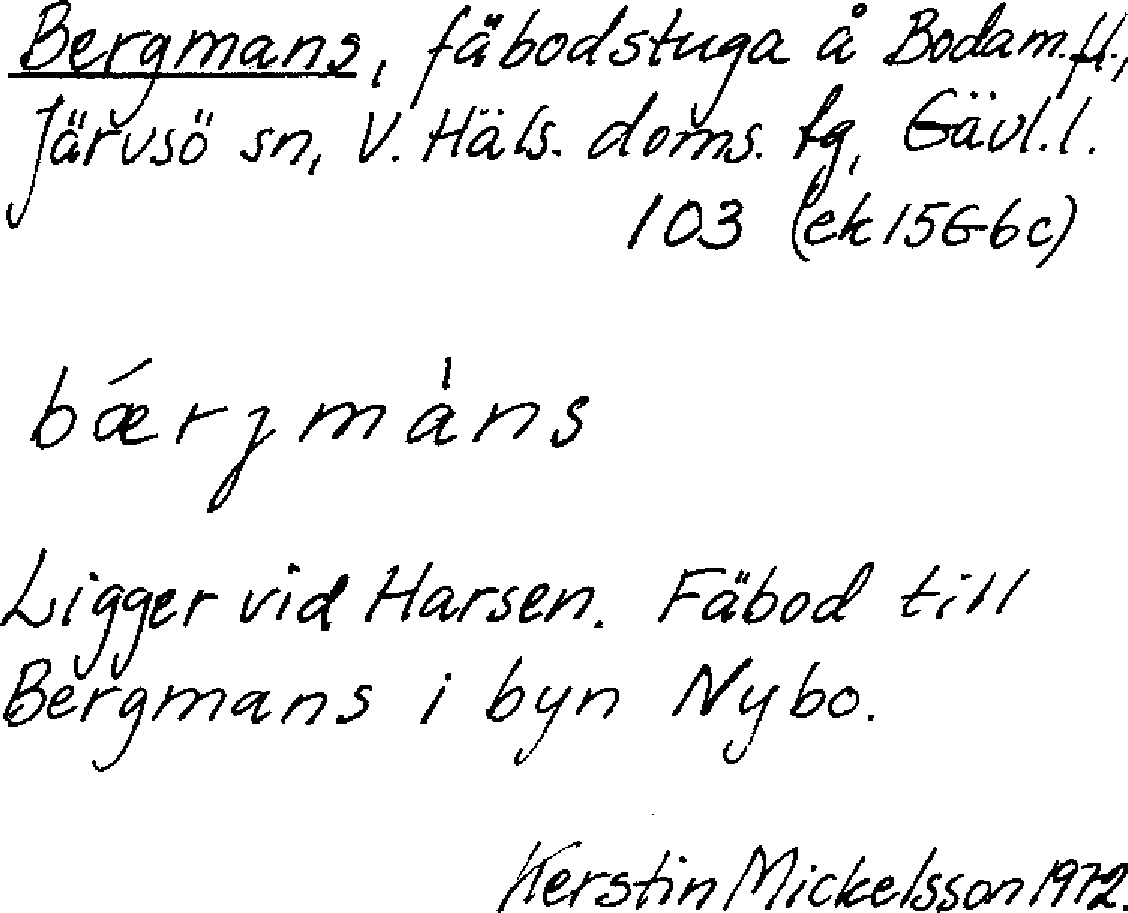 Bergmans, fäbodstuga å Bodam. fl.,
Järvsö sn, V. Häls. doms. tg, Gävl. l.
103 (ek 15G6c)
bǽrȷmàns
Ligger vid Harsen. Fäbod till
Bergmans i byn Nybo.
Kerstin Mickelsson 1972.